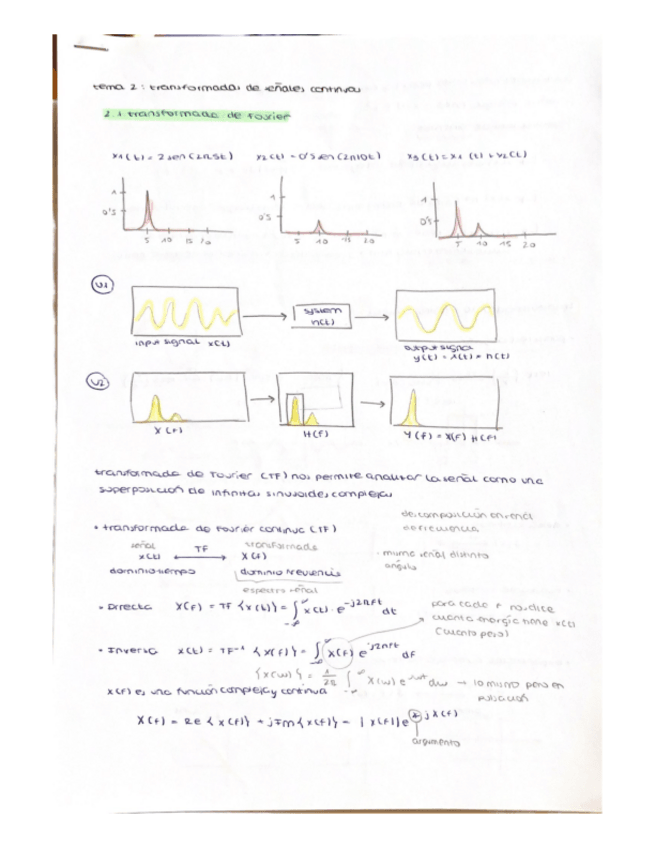 tema 2: transformadas de señales continuas
2.1 transformada de Fourier
x1(t) = 2 sen(2π5t) x2(t) = 0's sen(2π10t) x3(t) = x1(t) + x2(t)
1
0's
5 10 15 20
1
0's
5 10 15 20
1
0's
5 10 15 20
V1
system
h(t)
input signal x(t)
output signal
y(t) = x(t) * h(t)
V2
X(f)
H(f)
Y(f) = X(f) H(f)
transformada de Fourier (TF) nos permite analizar la señal como una
superposición de infinitas sinusoides complejas
• transformada de Fourier continua (TF)
descomposición en
de frecuencia
señal TF transformada
x(t) ⟷ X(f)
dominio tiempo dominio frecuencia
espectro señal
· misma señal distinto
ángulo
• Directa X(f) = TF {x(t)} = ∫_{-∞}^{∞} x(t) · e^{-j2πft} dt
para cada f nos dice
cuanta energía tiene x(t)
(cuanto pesa)
• Inversa x(t) = TF⁻¹ {X(f)} = ∫_{-∞}^{∞} X(f) e^{j2πft} df
{X(ω)} = 1/2π ∫_{-∞}^{∞} X(ω) e^{jωt} dω → lo mismo pero en
pulsación
X(f) es una función compleja y continua
X(f) = Re {X(f)} + jIm {X(f)} = |X(f)| e^{∡ jX(f)}
argumento